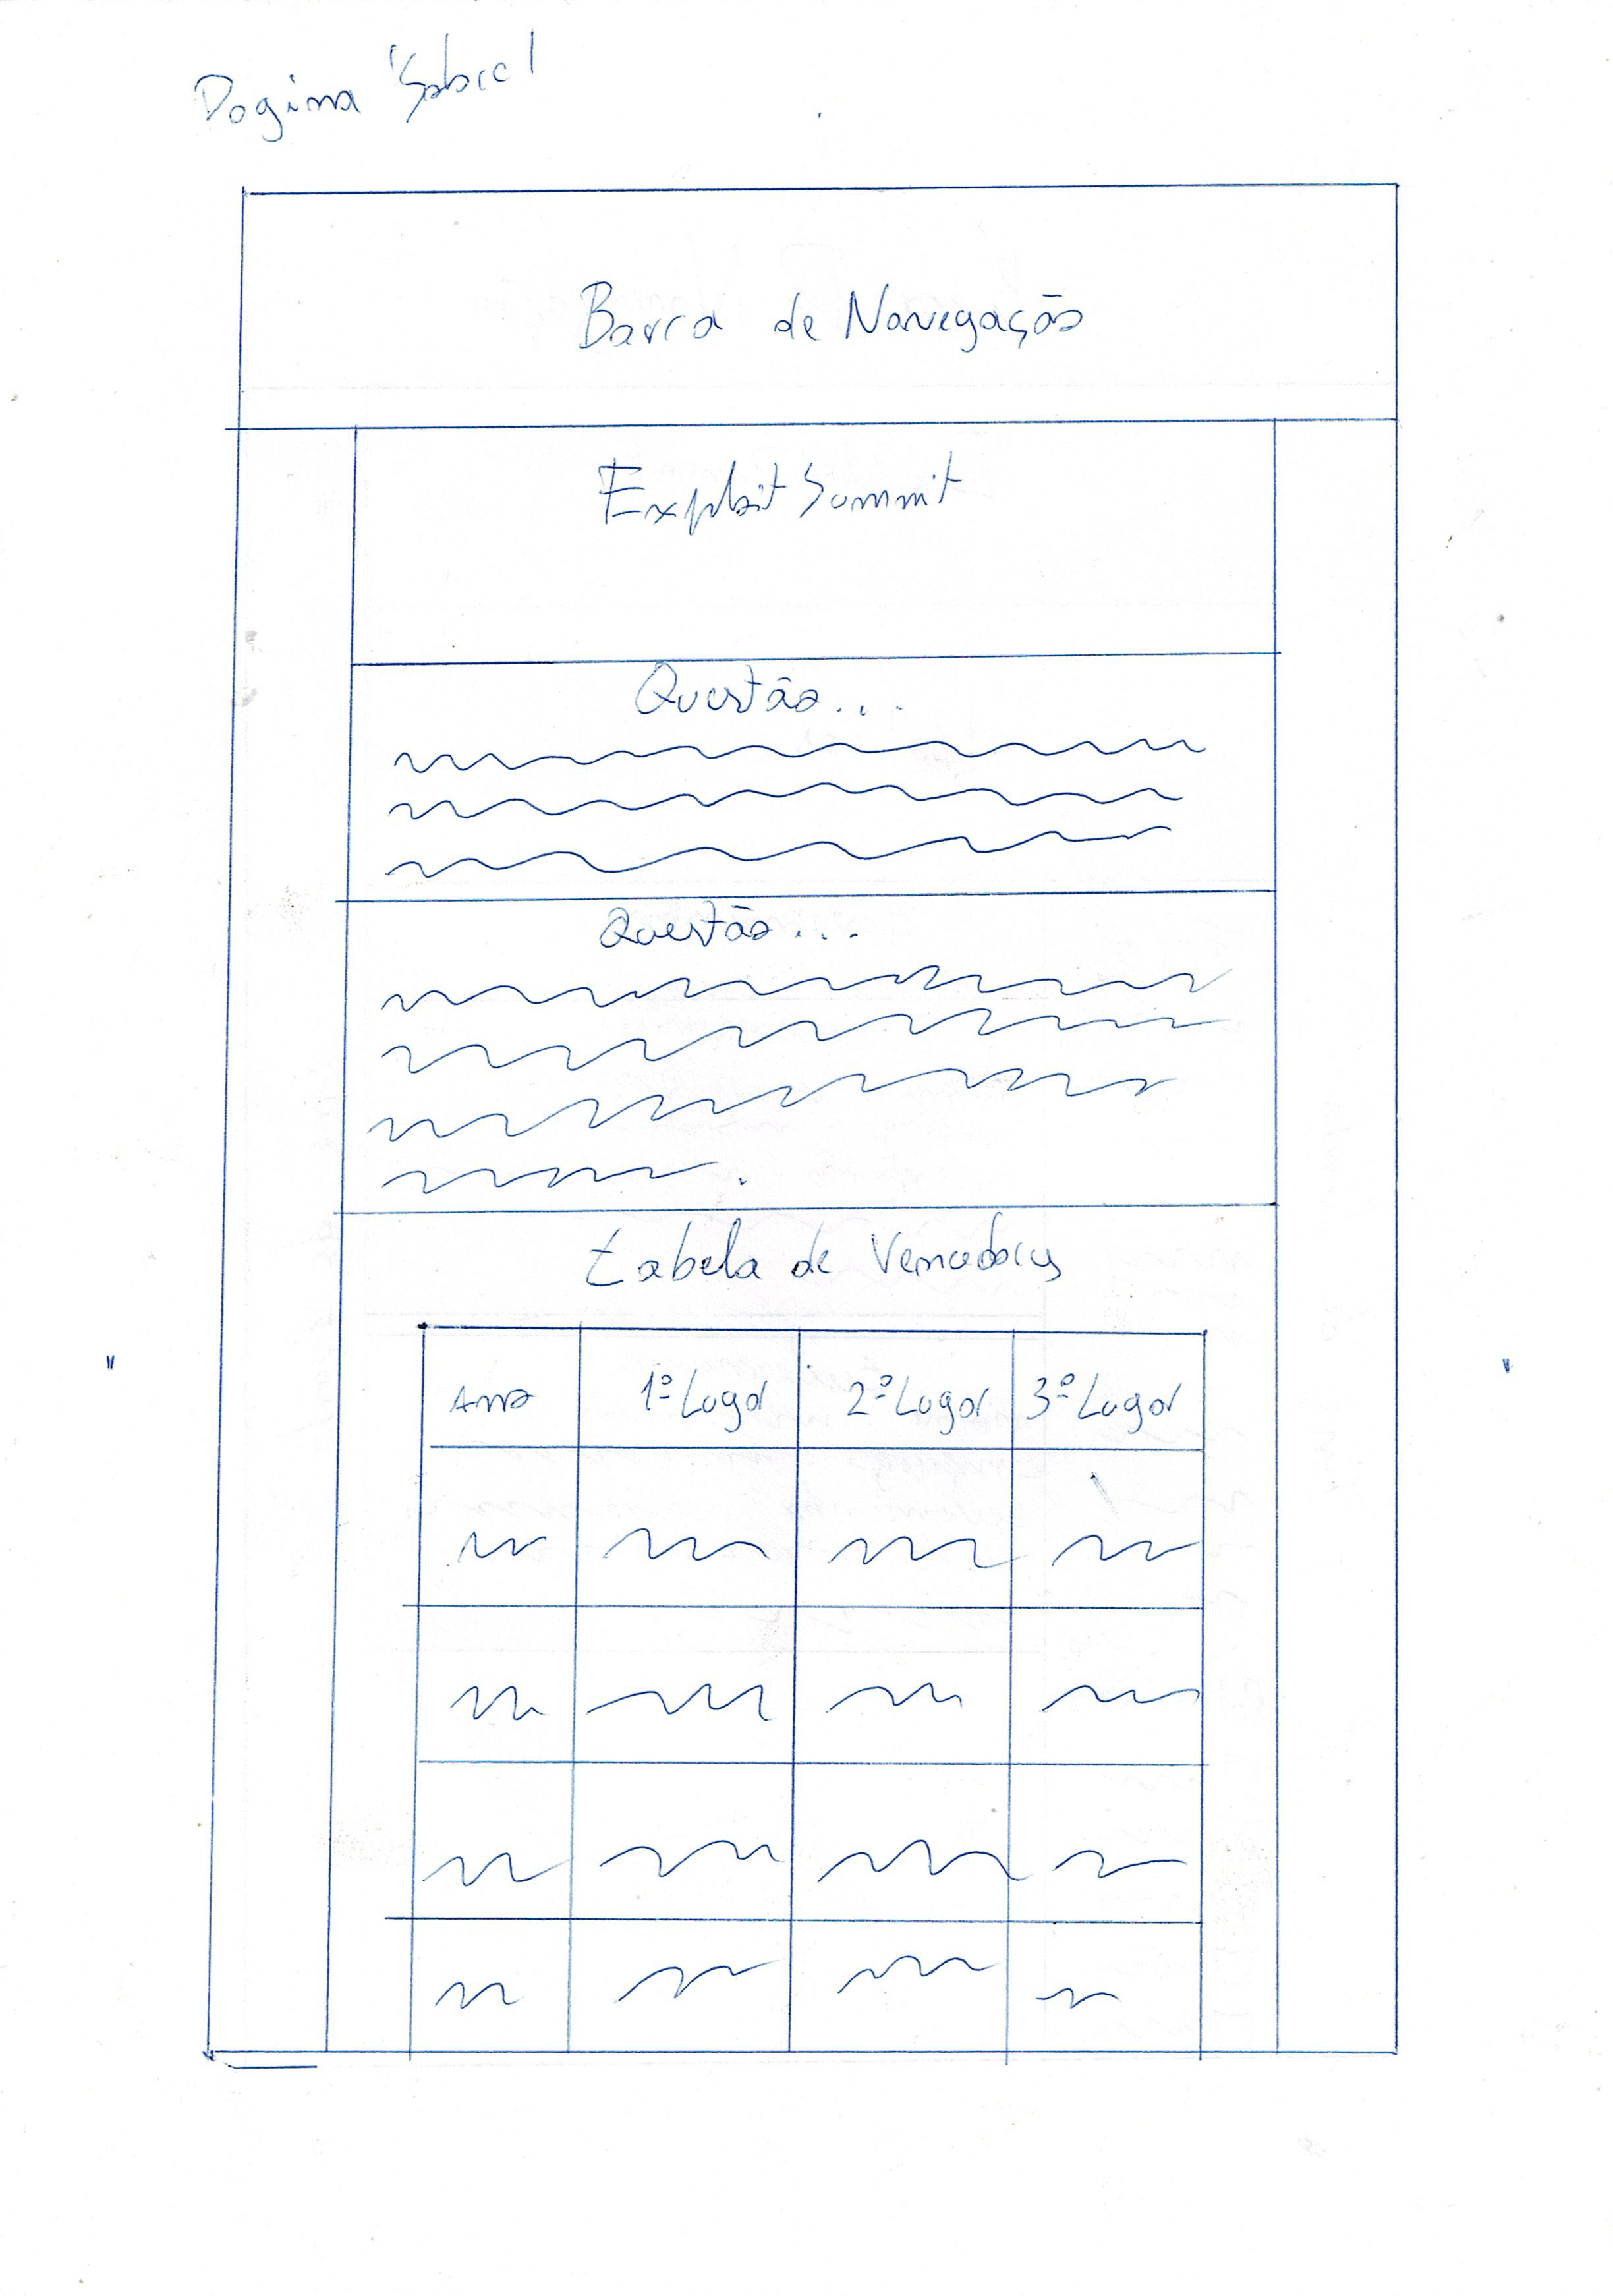 Pagina "Sobre"
Barra de Navegação
Exploit Summit
Questão...
Questão...
tabela de Vencedores
Ano 1º Lugar 2º Lugar 3º Lugar